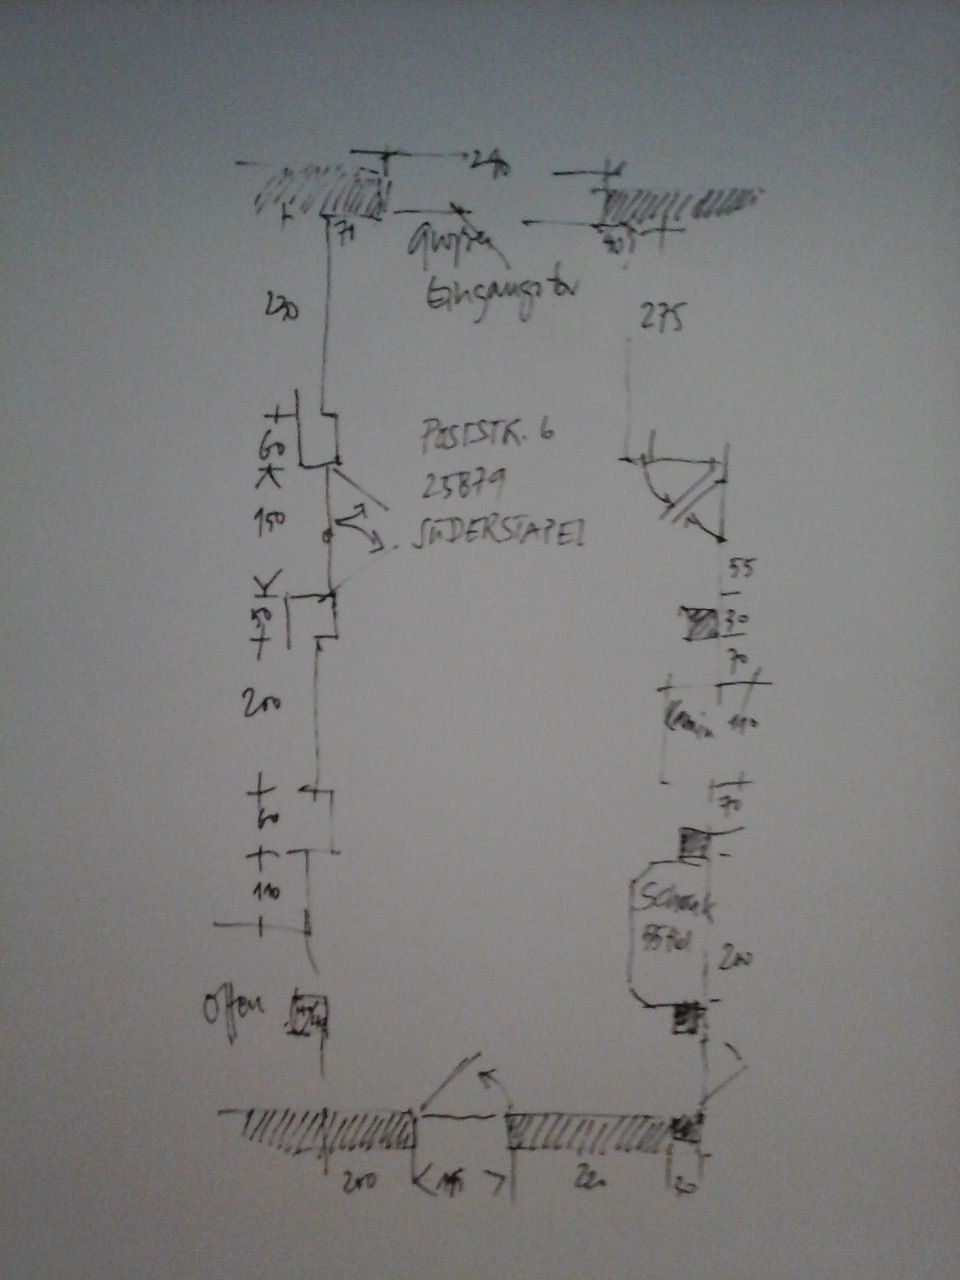 240
71
Großes
Eingangstor
230
275
60
POSTSTR. 6
25879
SÜDERSTAPEL
150
55
50
30
70
200
Kamin 110
70
60
110
Schrank
200
Offen
200
220
30